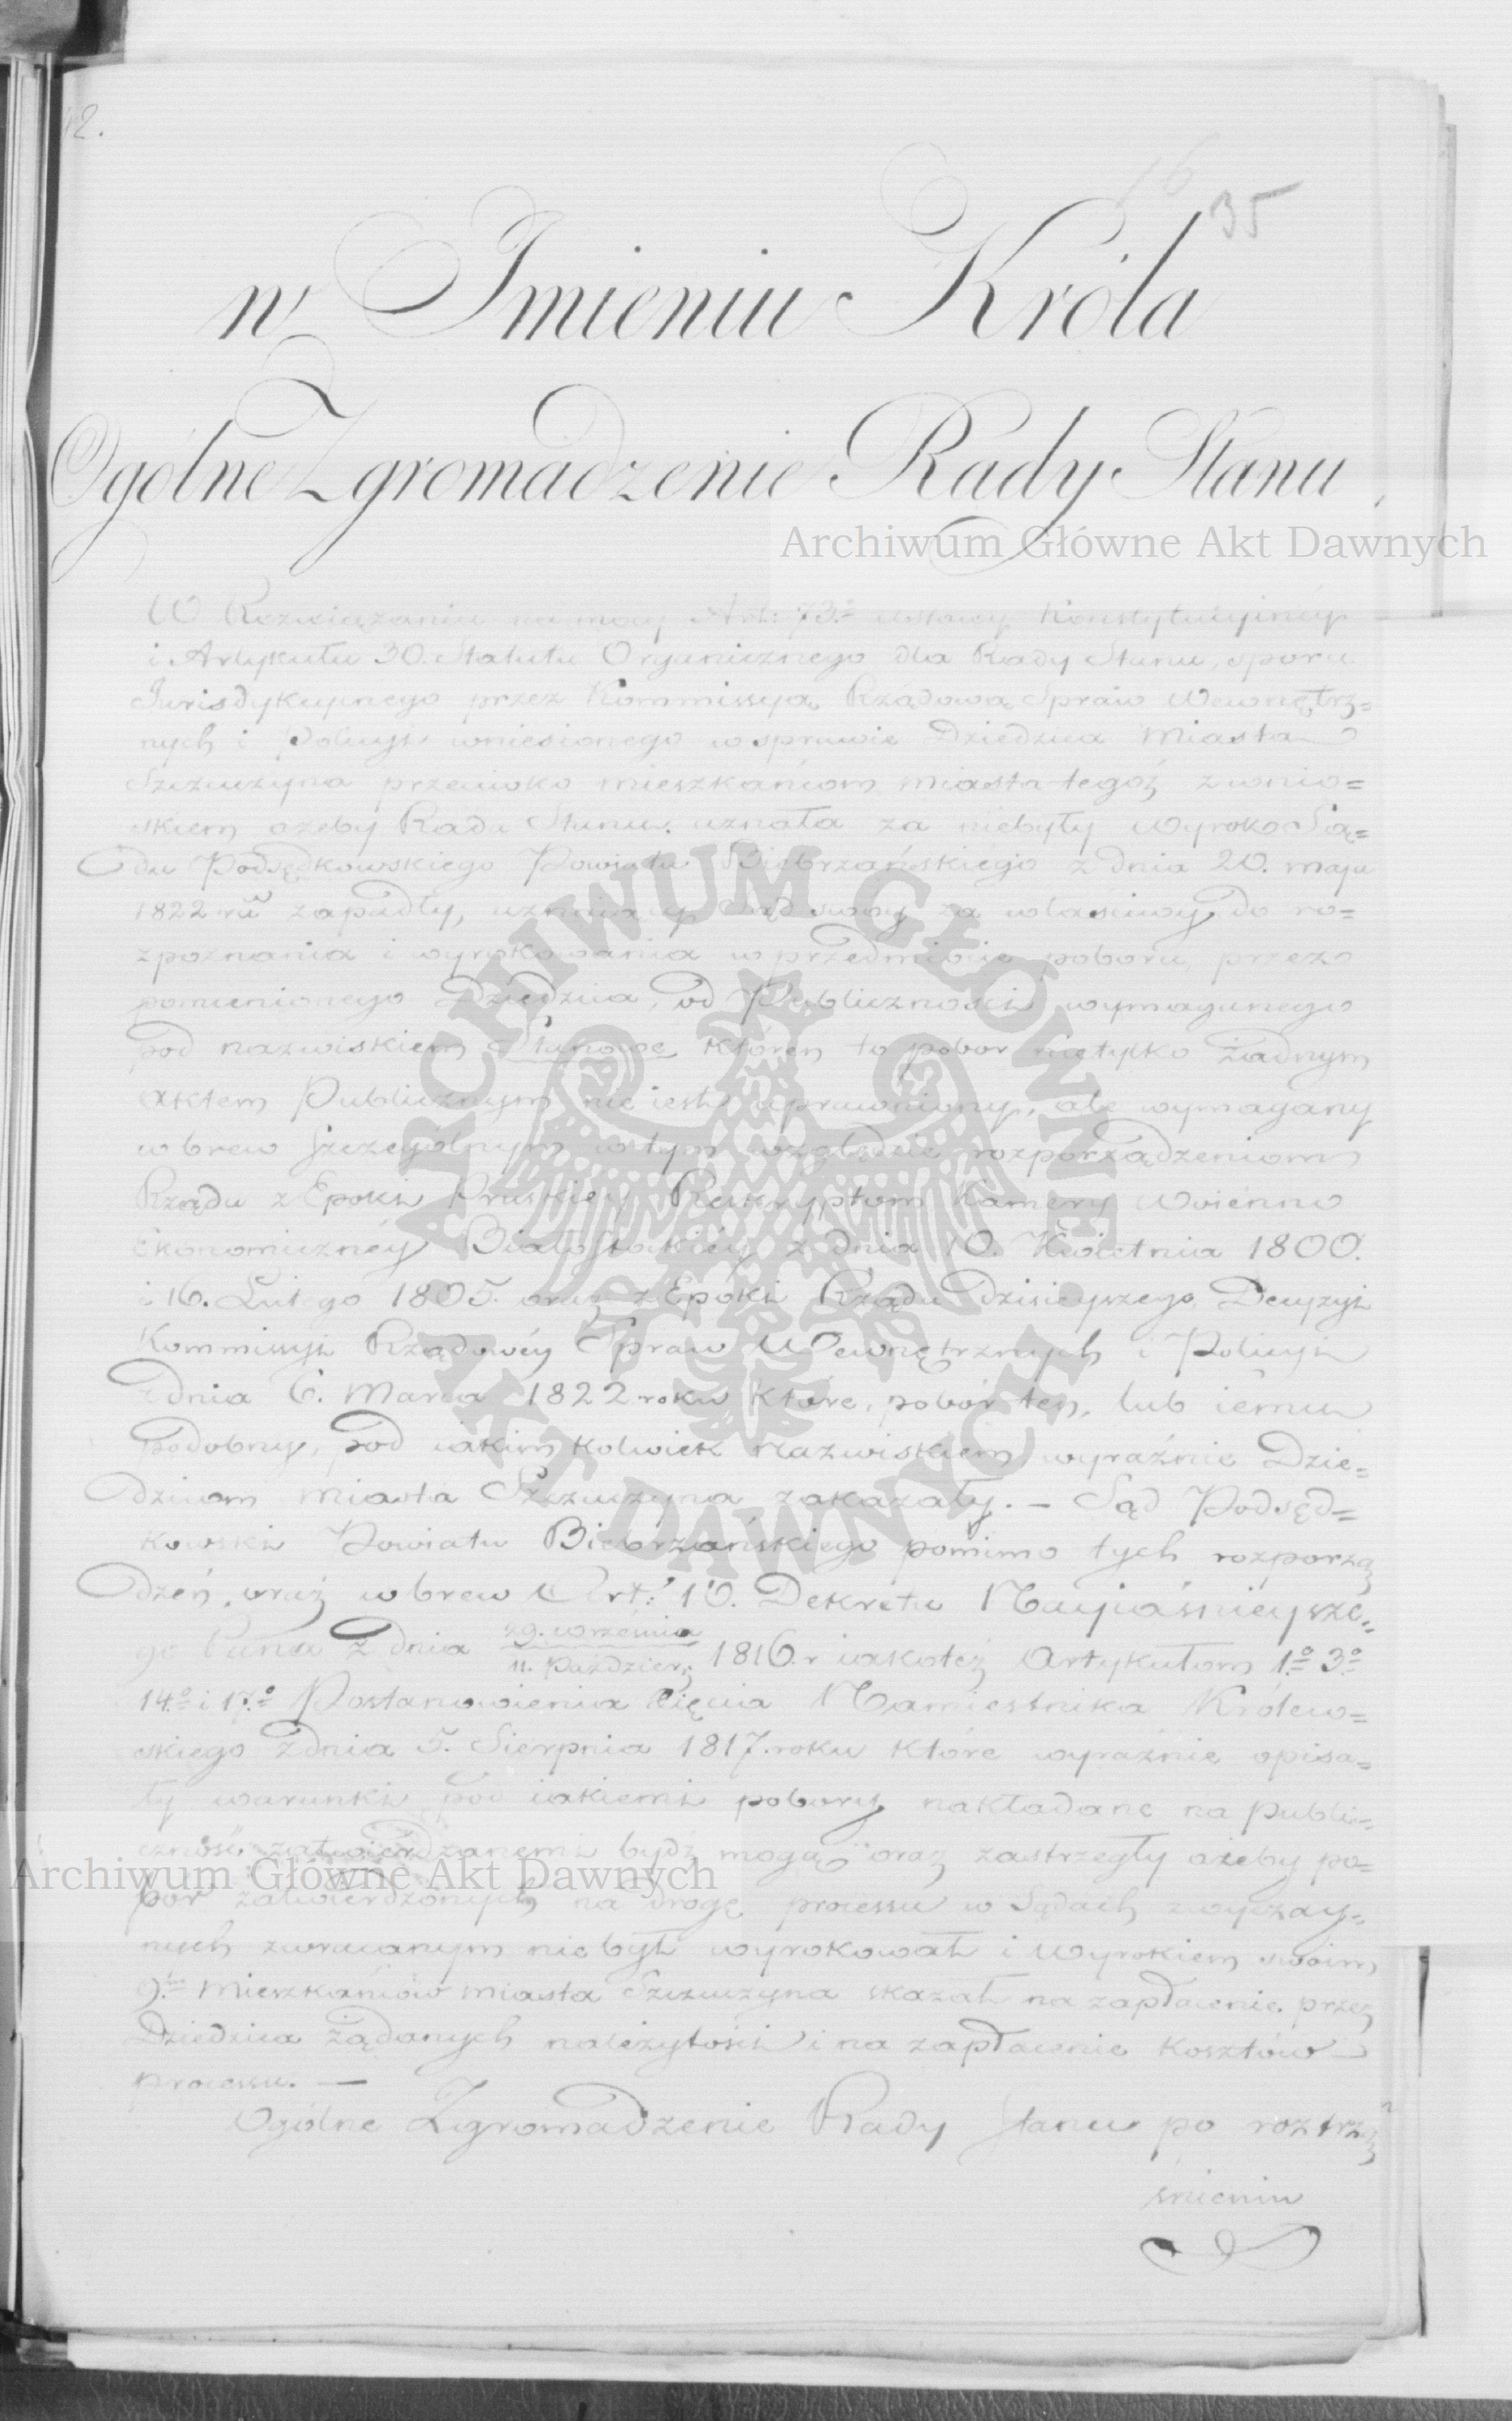 12.
16
35
w Imieniu Króla
Ogólne Zgromadzenie Rady Stanu
Archiwum Główne Akt Dawnych
W Rozwiązaniu na mocy Art: 73.º ustawy Konstytucyinéy
i Artykułu 30. Statutu Organicznego dla Rady Stanu, sporu
Jurisdykcyinego przez Kommissyą Rządową Spraw Wewnętrz=
nych i Policyi wniesionego w sprawie Dziedzica Miasta
Szczuczyna przeciwko mieszkańcom miasta tegoż z wnio=
skiem ażeby Rada Stanu uznała za niebyły wyrok Są=
du Podsędkowskiego Powiatu Biebrzańskiego z dnia 20. maja
1822 ru zapadły, uznaiący Sąd swóy za właściwy do ro=
zpoznania i wyrokowania w przedmiocie poboru, przez
pomienionego Dziedzica, od Publiczności wymaganego
pod nazwiskiem Stanowe, któren to pobor nietylko żadnym
aktem Publicznym nie iest uprawniony, ale wymagany
wbrew szczególnym w tym względzie rozporządzeniom
Rządu z Epoki Pruskiey Reskryptom Kamery Woienno
Ekonomicznéy Białostockiéy z dnia 10. Kwietnia 1800.
i 16. Lutego 1805. oraz z Epoki Rządu dzisieyszego, Decyzyi
Kommissyi Rządowéy Spraw Wewnętrznych i Policyi
z dnia 6. Marca 1822 roku które, pobór ten, lub iemu
podobny, pod iakim kolwiek nazwiskiem wyraźnie Dzie=
dzicom miasta Szczuczyna zakazały. — Sąd Podsęd=
kowski Powiatu Biebrzańskiego pomimo tych rozporzą
dzeń, oraz wbrew Art: 10. Dekretu Nayiaśnieysze=
go Pana z dnia 29. września / 11. Paździer: 1816. r iakoteż Artykułom 1.º 3.º
14.º i 17.º Postanowienia Xięcia Namiestnika Królew=
skiego z dnia 5. Sierpnia 1817. roku które wyraźnie opisa=
ły warunki, pod iakiemi pobory nakładane na publi=
czność zatwierdzanemi bydź mogą oraz zastrzegły ażeby po=
bor zatwierdzonych na drogę processu w Sądach zwyczay=
nych zwracanym niebył wyrokował i Wyrokiem swoim
9. Mieszkańców miasta Szczuczyna skazał na zapłacenie przez
Dziedzica żądanych należytości i na zapłacenie kosztów
processu. —
Ogólne Zgromadzenie Rady Stanu po roztrzą
śnieniu
ARCHIWUM GŁÓWNE AKT DAWNYCH
Archiwum Główne Akt Dawnych